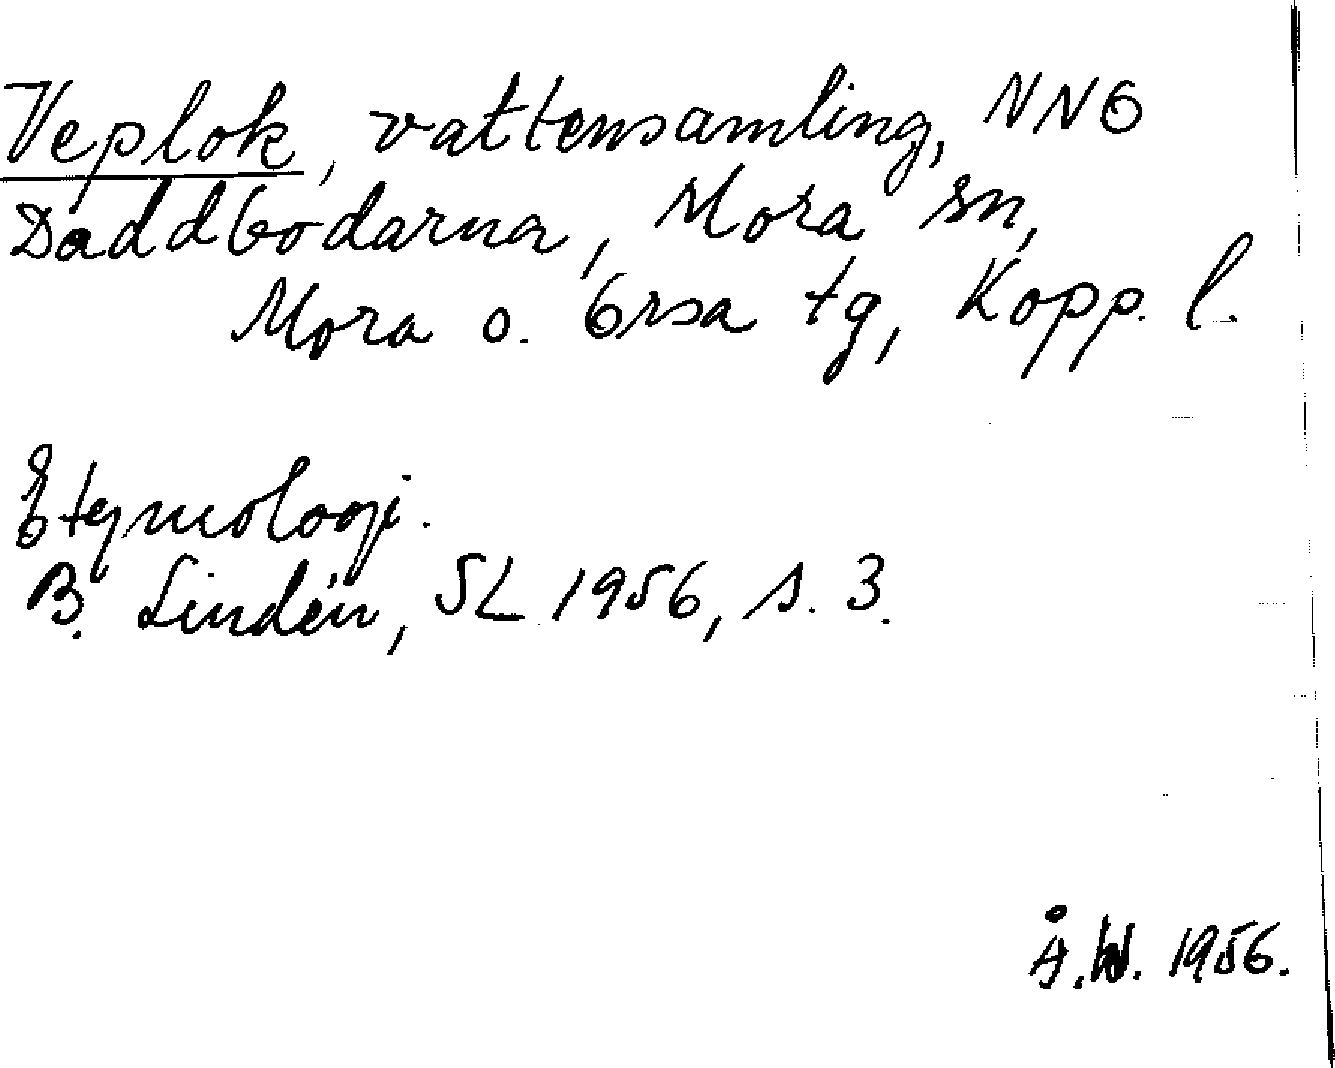 Veplok, vattensamling, NNO
Daddbodarna, Mora sn,
Mora o. Orsa tg, Kopp. l.
Etymologi.
B. Lindén, SL 1956, s. 3.
Å.W. 1956.